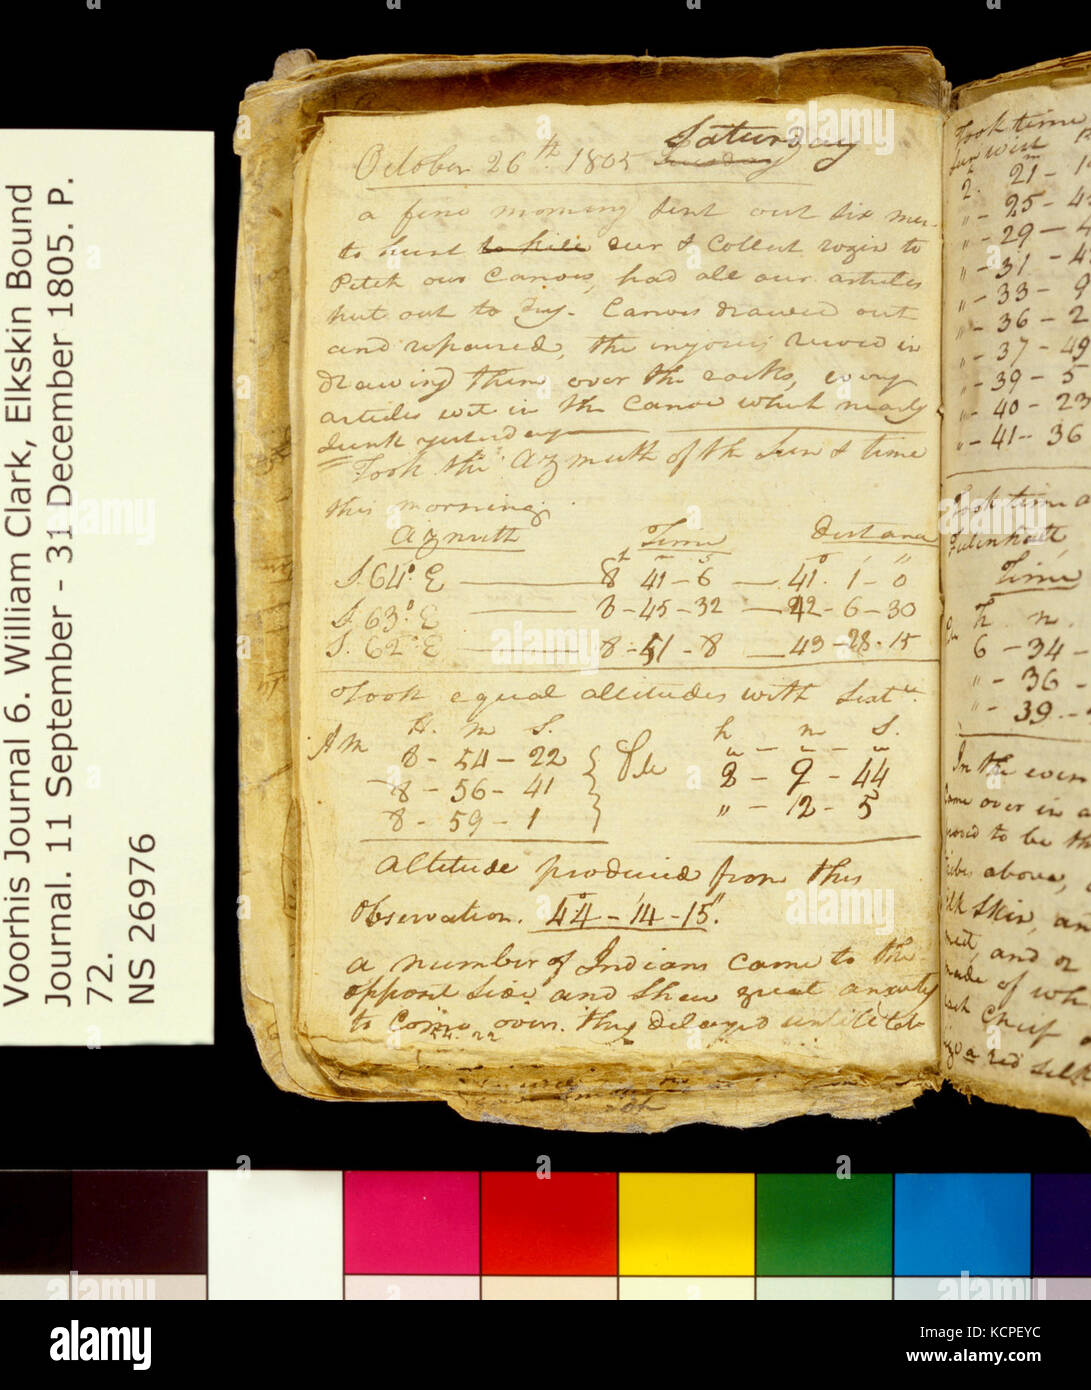 Voorhis Journal 6. William Clark, Elkskin Bound
Journal. 11 September - 31 December 1805. P.
72.
NS 26976
October 26th 1805 Saturday
Tuesday
a fine morning Sent out Six men
to hunt to kill der & Collect rozin to
Pitch our Canoes, had all our articles
put out to dry- Canoes drawed out
and repaired, the injories recved in
drawing them over the rocks, every
article wet in the Canoe which nearly
Sunk yesterday
Took the Azmuth of the Sun & time
this morning
Azmuth Time Distance
h m s ° ' "
S. 64° E 8 41 - 6 41 . 1 - 0
S. 63° E 8 - 45 - 32 42 - 6 - 30
S. 62° E 8 - 51 - 8 43 - 28 - 15
Took equal altitudes with Sext
H. m S. h m S.
A M 8 - 54 - 22
8 - 56 - 41 2 - 9 - 44
8 - 59 - 1 " - 12 - 5
altitude produced from this
observation. 44° - 14' - 15".
a number of Indians came to the
opposit Side and Shew great anxiety
to Come over. they delayed untill late
Took time
Sun west
2. 21 - 1
" - 25 - 4
" - 29 - 4
" - 31 - 4
" - 33 - 9
" - 36 - 2
" - 37 - 49
" - 39 - 5
" - 40 - 23
" - 41 - 36
Took time
Time
h m.
6 - 34 -
" - 36 -
" - 39 -
In the even
Came over in a
above,
Elk Skin, an
and
made of wh
each Chief
a red silk
a
alamy
Image ID: KCPEYC
www.alamy.com